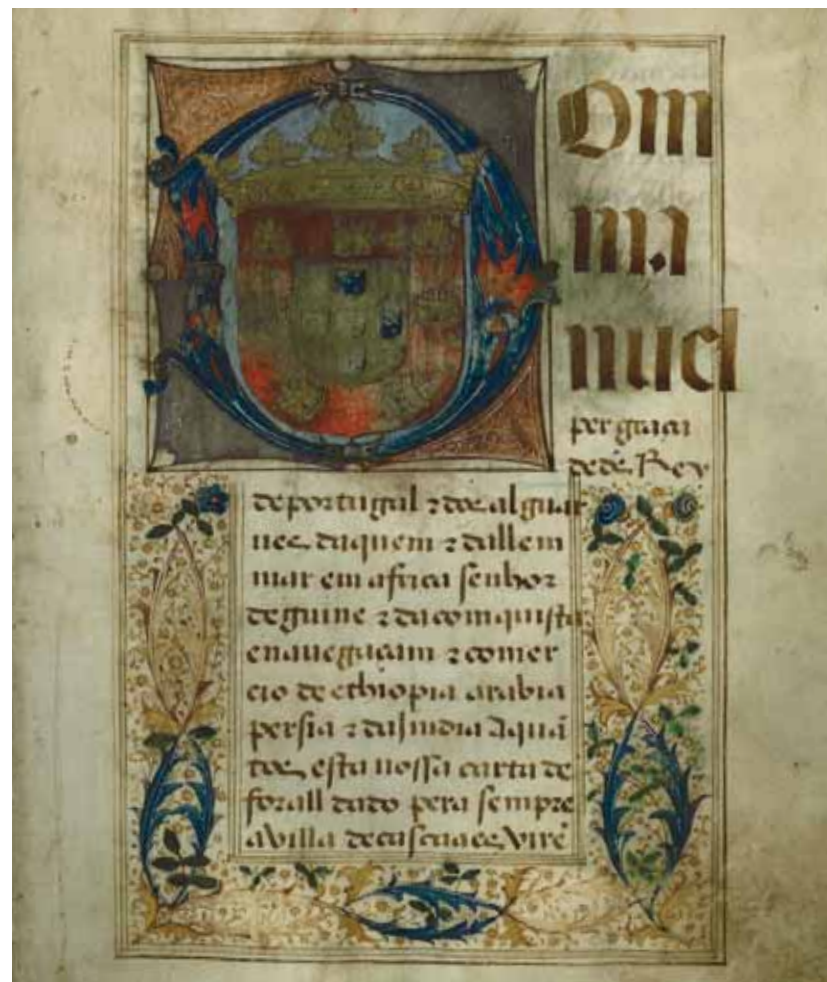 Dom
m.a
nuel
per graça
de ds̄ Rey
de portugal ⁊ dos algar
ues daquem ⁊ dallem
mar em africa senhor
de guine ⁊ da comquista
e nauegaçam ⁊ comer
cio de ethiopia arabia
persia ⁊ da jndia A quã
tos esta nossa carta de
forall dado pera sempre
a villa de cascaaes virẽ